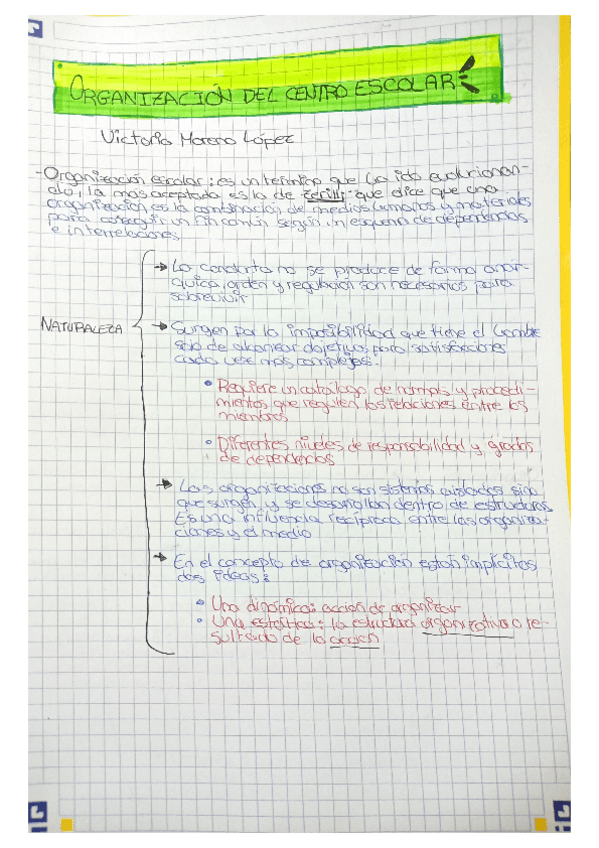 ORGANIZACIÓN DEL CENTRO ESCOLAR
Victoria Moreno López
-Organización escolar: es un término que ha ido evolucionan-
do, la más aceptada es la de que dice que una
organización es la combinación de medios humanos y materiales
para conseguir un fin común según un esquema de dependencias
e interrelaciones.
NATURALEZA
→ La conducta no se produce de forma anár-
quica, orden y regulación son necesarios para
sobrevivir
→ Surgen por la imposibilidad que tiene el hombre
solo de alcanzar objetivos para satisfacciones
cada vez más complejas:
• Requiere un catálogo de normas y procedi-
mientos que regulen las relaciones entre los
miembros
• Diferentes niveles de responsabilidad y grados
de dependencias
→ Las organizaciones no son sistemas aislados sino
que surgen y se desarrollan dentro de estructuras
Es una influencia recíproca entre las organiza-
ciones y el medio
→ En el concepto de organización están implícitas
dos ideas:
• Una dinámica: acción de organizar
• Una estática: la estructura organizativa o re-
sultado de la acción